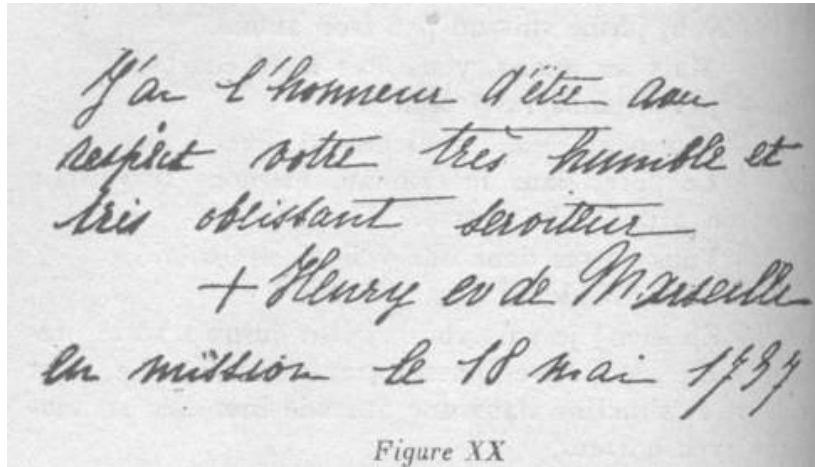 J'ai l'honneur d'être avec
respect votre très humble et
très obéissant serviteur
+ Henry ev de Marseille
en mission le 18 mai 1737
Figure XX